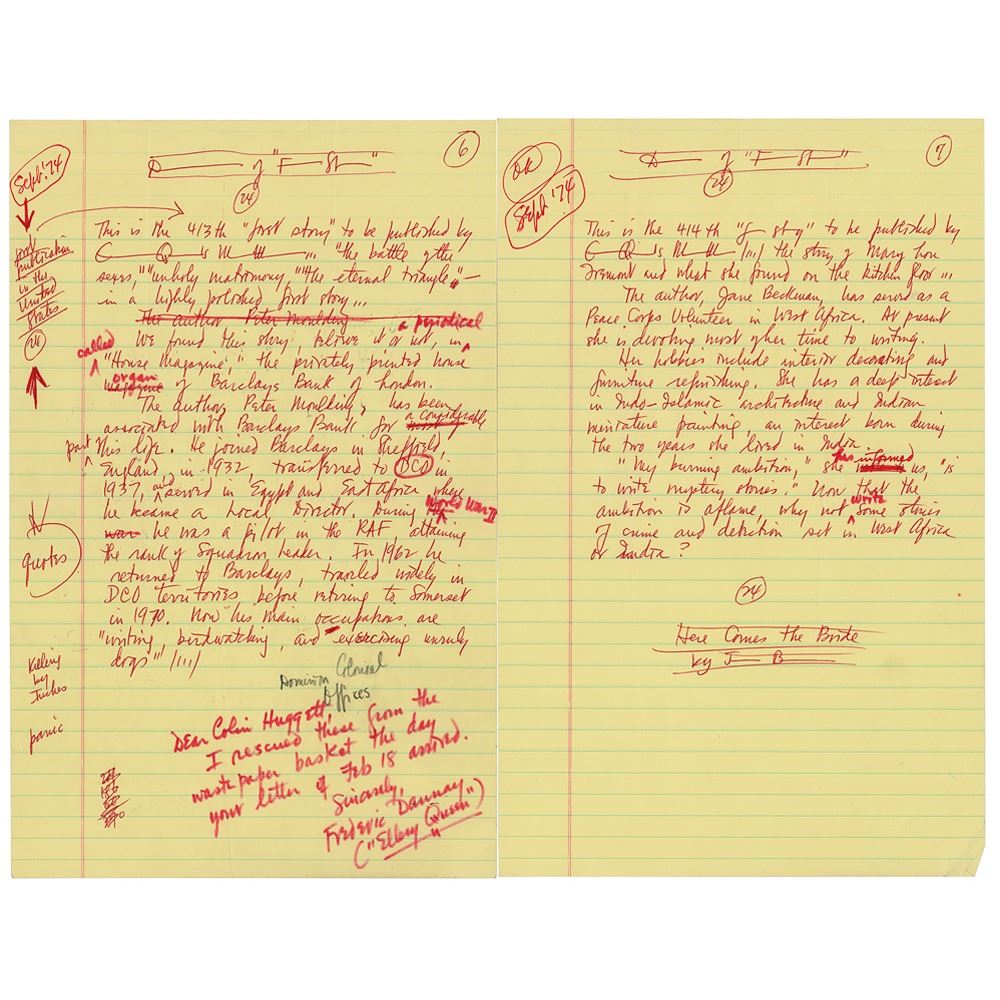 6
D—— of "F—— St——"
24
Sept. '74
first
publication
in the
United
States
24
This is the 413th "first story" to be published by
E—— Q——'s M—— M—— ... "the battle of the
sexes," "unholy matrimony," "the eternal triangle" —
in a highly polished first story ...
The author Peter Moulding
We found this story, believe it or not, in a periodical
called
"House Magazine," the privately printed house
magazine organ of Barclays Bank of London.
The author, Peter Moulding, has been
associated with Barclays Bank for most a considerable
part of his life. He joined Barclays in Sheffield,
England, in 1932, transferred to DCO in
1937, and served in Egypt and East Africa where
he became a Local Director. During World War II
war he was a pilot in the RAF attaining
the rank of Squadron Leader. In 1962 he
returned to Barclays, traveled widely in
DCO territories before retiring to Somerset
in 1970. Now his main occupations are
"writing, birdwatching, and exercising unruly
dogs" /////
quotes
Killing
by
Inches
panic
Dominion Colonial
Offices
Dear Colin Huggett,
I rescued these from the
waste paper basket the day
your letter of Feb 18 arrived.
Sincerely,
Frederic Dannay
("Ellery Queen")
7
D—— of "F—— St——"
24
OK
Sept. '74
This is the 414th "f—— story" to be published by
E—— Q——'s M—— M—— /////, the story of Mary Lou
Desmont and what she found on the kitchen floor ...
The author, Jane Beckman, has served as a
Peace Corps Volunteer in West Africa. At present
she is devoting most of her time to writing.
Her hobbies include interior decorating and
furniture refinishing. She has a deep interest
in Indo-Islamic architecture and Indian
miniature painting, an interest born during
the two years she lived in India.
"My burning ambition," she has informed us, "is
to write mystery stories." Now that the
ambition is aflame, why not write some stories
of crime and detection set in West Africa
or India?
24
Here Comes the Bride
by J—— B——